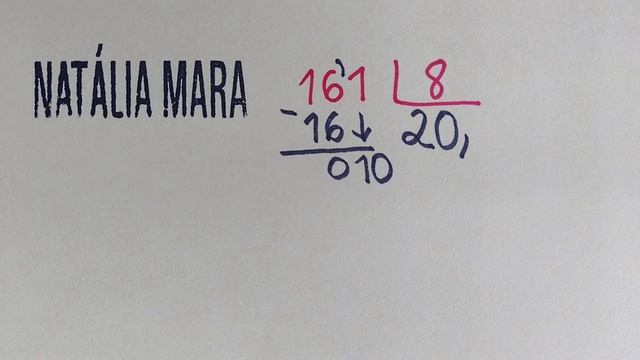 NATÁLIA MARA
16'1 8
-16↓ 20,
010